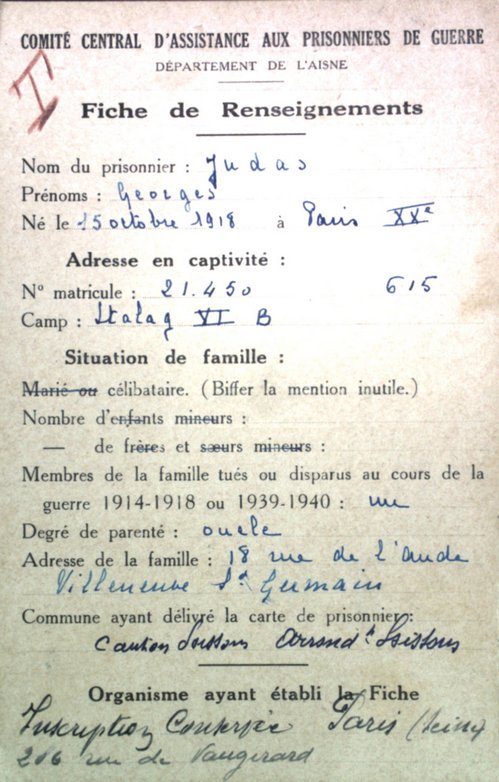 COMITÉ CENTRAL D'ASSISTANCE AUX PRISONNIERS DE GUERRE
DÉPARTEMENT DE L'AISNE
I
Fiche de Renseignements
Nom du prisonnier : Judas
Prénoms : Georges
Né le 25 octobre 1918 à Paris XXe
Adresse en captivité :
No matricule : 21.450 615
Camp : Stalag VI B
Situation de famille :
Marié ou célibataire. (Biffer la mention inutile.)
Nombre d'enfants mineurs :
— de frères et sœurs mineurs :
Membres de la famille tués ou disparus au cours de la
guerre 1914-1918 ou 1939-1940 : un
Degré de parenté : oncle
Adresse de la famille : 18 rue de l'Aude
Villeneuve St Germain
Commune ayant délivré la carte de prisonnier :
Canton Soissons Arrond.t Soissons
Organisme ayant établi la Fiche
Inscription Paris (Seine)
206 rue de Vaugirard